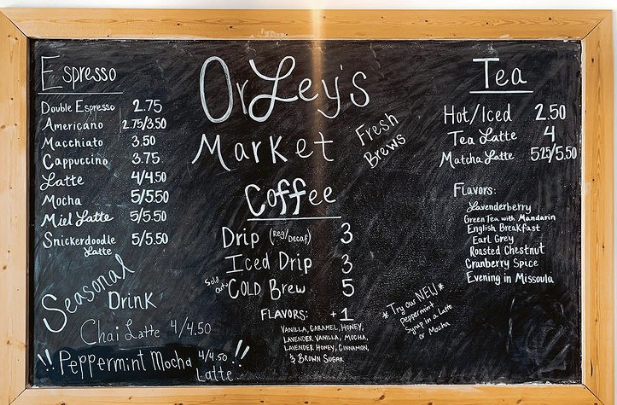 Espresso
Double Espresso 2.75
Americano 2.75/3.50
Macchiato 3.50
Cappuccino 3.75
Latte 4/4.50
Mocha 5/5.50
Miel Latte 5/5.50
Snickerdoodle 5/5.50
Latte
Seasonal
Drink
Chai Latte 4/4.50
!! Peppermint Mocha 4/4.50 !!
Latte
OrLey's
Market
Fresh
Brews
Coffee
Drip (Reg/Decaf) 3
Iced Drip 3
Sold out Cold Brew 5
FLAVORS: +1
VANILLA, CARAMEL, HONEY,
LAVENDER VANILLA, MOCHA,
LAVENDER HONEY, CINNAMON,
& BROWN SUGAR
* Try our NEW *
Peppermint
Syrup in a Latte
or Mocha
Tea
Hot/Iced 2.50
Tea Latte 4
Matcha Latte 5.25/5.50
FLAVORS:
Lavenderberry
Green Tea with Mandarin
English Breakfast
Earl Grey
Roasted Chestnut
Cranberry Spice
Evening in Missoula